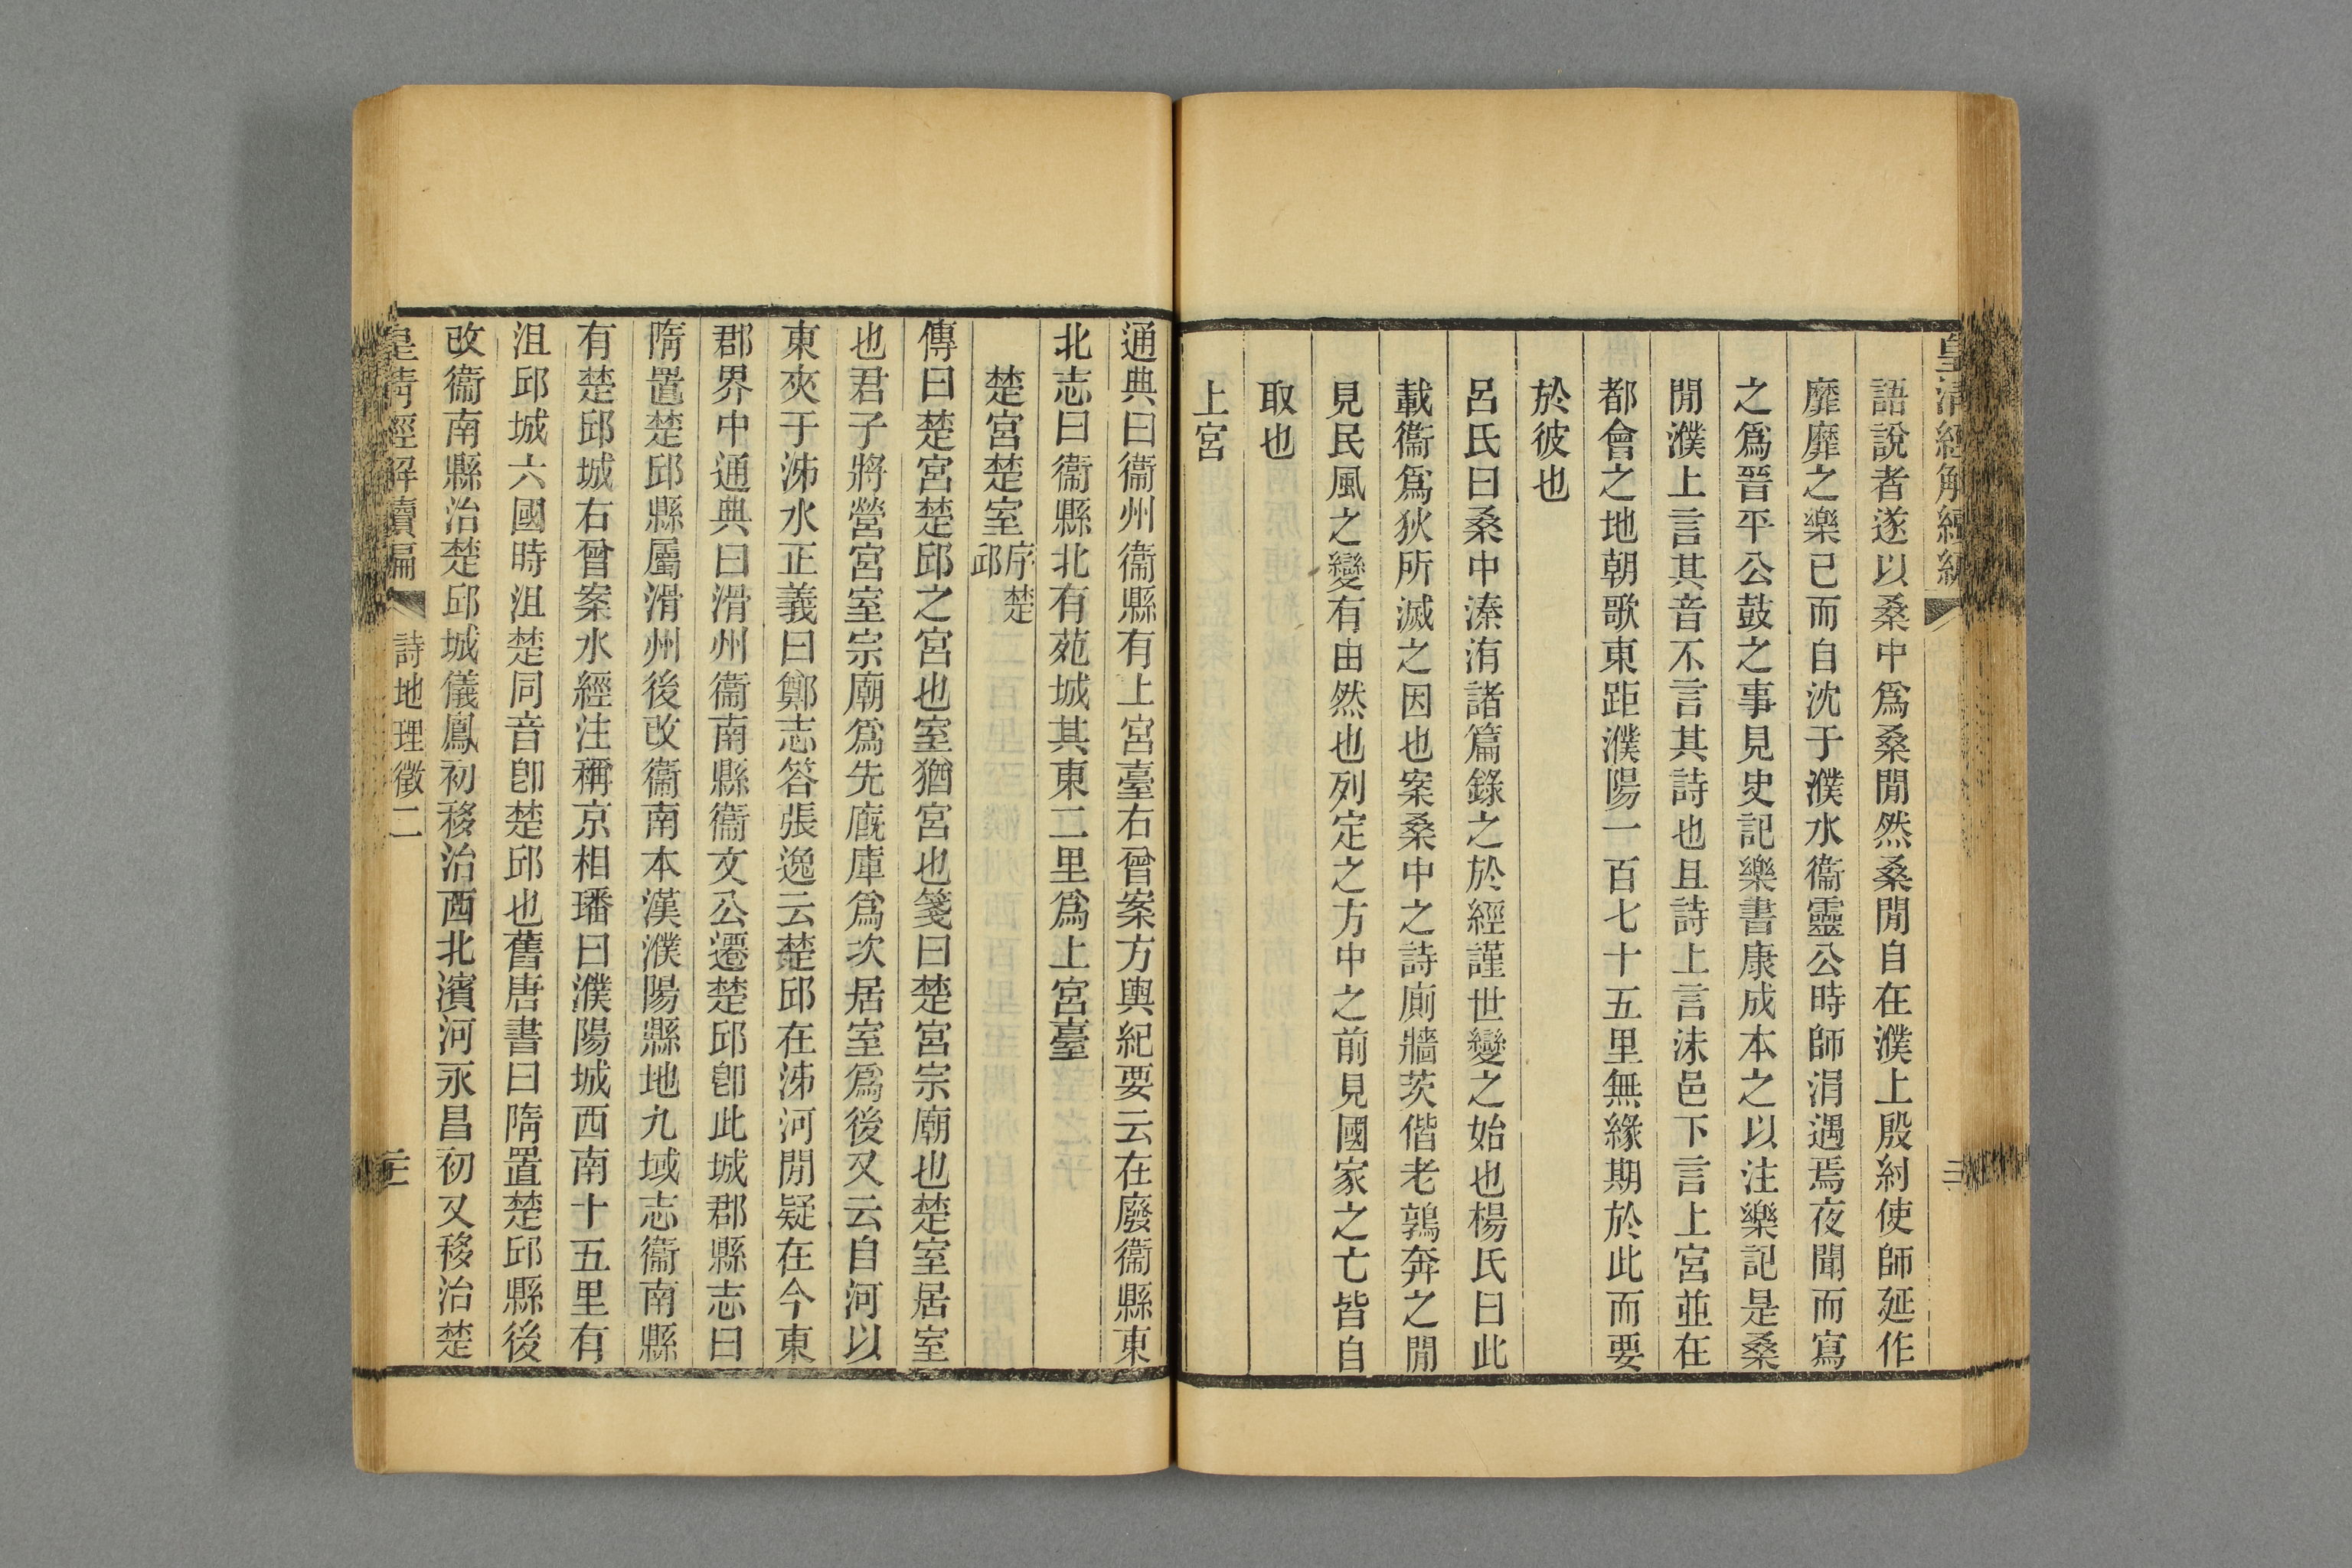 皇清經解續編
語說者遂以桑中爲桑閒然桑閒自在濮上殷紂使師延作
靡靡之樂已而自沈于濮水衞靈公時師涓遇焉夜聞而寫
之爲晉平公鼓之事見史記樂書康成本之以注樂記是桑
閒濮上言其音不言其詩也且詩上言沬邑下言上宮並在
都會之地朝歌東距濮陽一百七十五里無緣期於此而要
於彼也
呂氏曰桑中溱洧諸篇錄之於經謹世變之始也楊氏曰此
載衞爲狄所滅之因也案桑中之詩廁牆茨偕老鶉奔之閒
見民風之變有由然也列定之方中之前見國家之亡皆自
取也
上宮
通典曰衞州衞縣有上宮臺右曾案方輿紀要云在廢衞縣東
北志曰衞縣北有苑城其東二里爲上宮臺
楚宮楚室序楚邱
傳曰楚宮楚邱之宮也室猶宮也箋曰楚宮宗廟也楚室居室
也君子將營宮室宗廟爲先廄庫爲次居室爲後又云自河以
東夾于泲水正義曰鄭志答張逸云楚邱在泲河閒疑在今東
郡界中通典曰滑州衞南縣衞文公遷楚邱卽此城郡縣志曰
隋置楚邱縣屬滑州後改衞南本漢濮陽縣地九域志衞南縣
有楚邱城右曾案水經注稱京相璠曰濮陽城西南十五里有
沮邱城六國時沮楚同音卽楚邱也舊唐書曰隋置楚邱縣後
改衞南縣治楚邱城儀鳳初移治西北濱河永昌初又移治楚
皇清經解續編 詩地理徵二